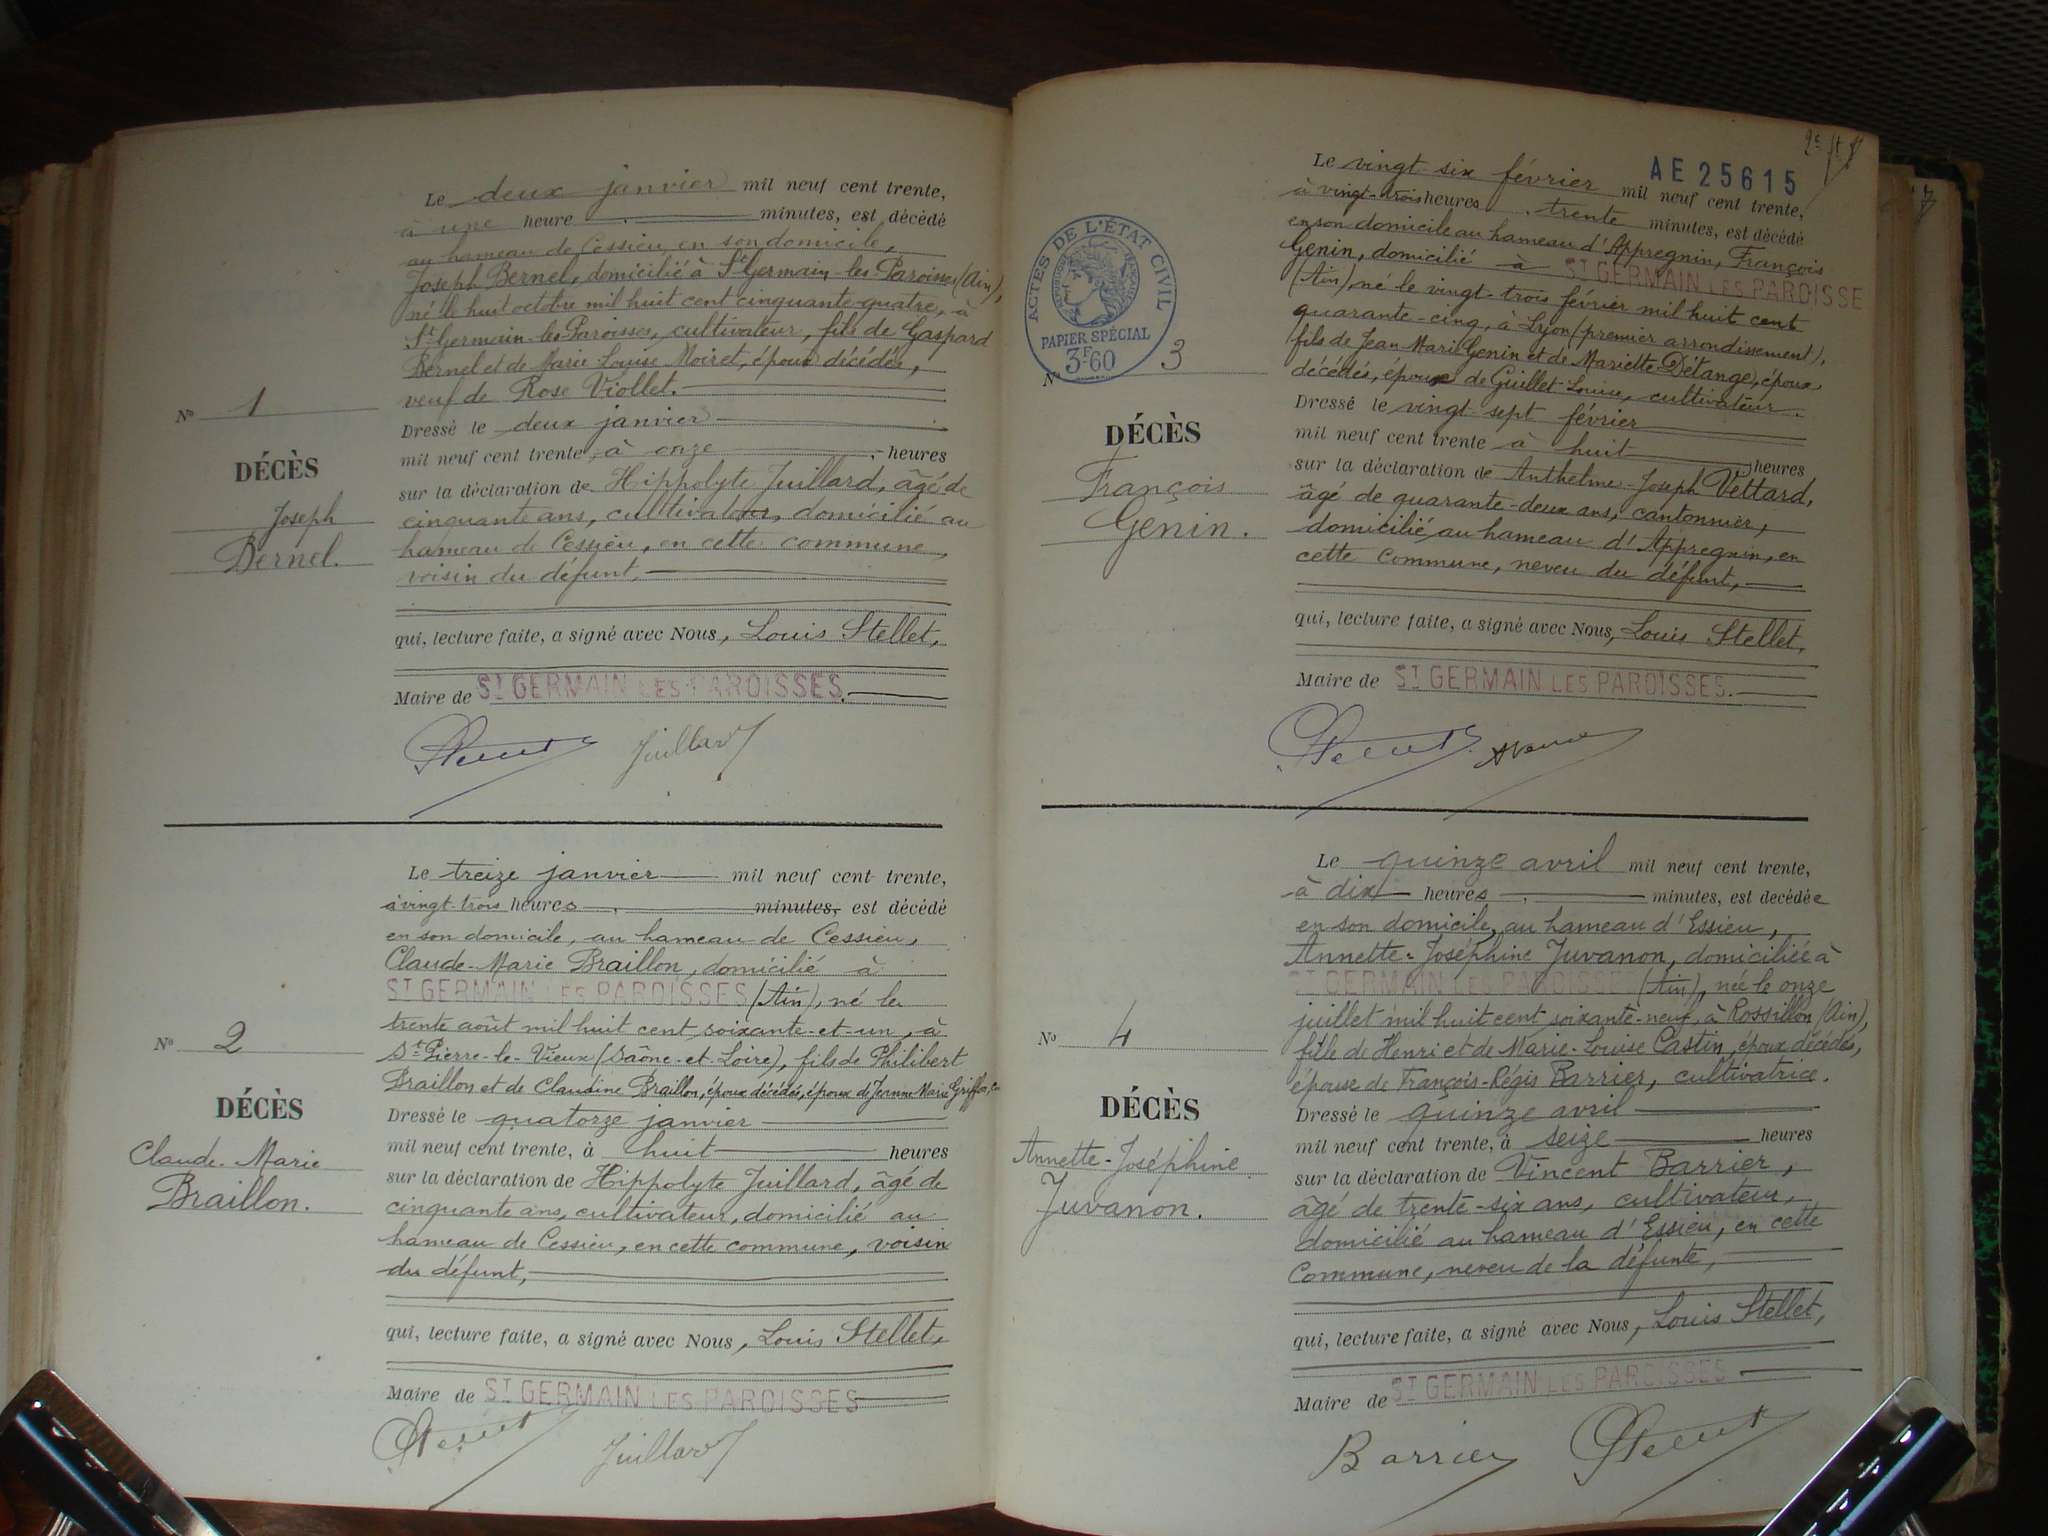 Le deux janvier mil neuf cent trente,
à une heure minutes, est décédé
au hameau de Cessieu en son domicile,
Joseph Bernel, domicilié à St Germain-les-Paroisses (Ain),
né le huit octobre mil huit cent cinquante-quatre, à
St Germain-les-Paroisses, cultivateur, fils de Gaspard
Bernel et de Marie-Louise Moiret, époux décédés,
veuf de Rose Viollet.
Nº 1
DÉCÈS
Joseph
Bernel.
Dressé le deux janvier
mil neuf cent trente, à onze heures
sur la déclaration de Hippolyte Juillard, âgé de
cinquante ans, cultivateur, domicilié au
hameau de Cessieu, en cette commune,
voisin du défunt,
qui, lecture faite, a signé avec Nous, Louis Stellet,
Maire de ST GERMAIN LES PAROISSES.
Juillard
Le treize janvier mil neuf cent trente,
à vingt-trois heures minutes, est décédé
en son domicile, au hameau de Cessieu,
Claude-Marie Braillon, domicilié à
ST GERMAIN LES PAROISSES (Ain), né le
trente août mil huit cent soixante-et-un, à
St-Pierre-le-Vieux (Saône-et-Loire), fils de Philibert
Braillon et de Claudine Braillon, époux décédés, époux de Jeanne Marie
Nº 2
DÉCÈS
Claude-Marie
Braillon.
Dressé le quatorze janvier
mil neuf cent trente, à huit heures
sur la déclaration de Hippolyte Juillard, âgé de
cinquante ans, cultivateur, domicilié au
hameau de Cessieu, en cette commune, voisin
du défunt,
qui, lecture faite, a signé avec Nous, Louis Stellet,
Maire de ST GERMAIN LES PAROISSES
Juillard
AE 25615
Le vingt-six février mil neuf cent trente,
à vingt-trois heures trente minutes, est décédé
en son domicile au hameau d'Appregnin, François
Genin, domicilié à ST GERMAIN LES PAROISSE
(Ain), né le vingt-trois février mil huit cent
quarante-cinq, à Lyon (premier arrondissement),
fils de Jean Marie Genin et de Mariette Détange, époux
décédés, époux de Guillet Louise, cultivateur.
ACTES DE L'ÉTAT CIVIL
RÉPUBLIQUE FRANÇAISE
PAPIER SPÉCIAL
3F60
Nº 3
DÉCÈS
François
Genin.
Dressé le vingt-sept février
mil neuf cent trente à huit heures
sur la déclaration de Anthelme-Joseph Vettard,
âgé de quarante-deux ans, cantonnier,
domicilié au hameau d'Appregnin, en
cette commune, neveu du défunt,
qui, lecture faite, a signé avec Nous, Louis Stellet,
Maire de ST GERMAIN LES PAROISSES.
Le quinze avril mil neuf cent trente,
à dix heures minutes, est decédée
en son domicile, au hameau d'Essieu,
Annette-Joséphine Juvanon, domiciliée à
ST GERMAIN LES PAROISSES (Ain), née le onze
juillet mil huit cent soixante-neuf, à Rossillon (Ain),
fille de Henri et de Marie-Louise Castin, époux décédés,
épouse de François-Régis Barrier, cultivatrice.
Nº 4
DÉCÈS
Annette-Joséphine
Juvanon.
Dressé le quinze avril
mil neuf cent trente, à seize heures
sur la déclaration de Vincent Barrier,
âgé de trente-six ans, cultivateur,
domicilié au hameau d'Essieu, en cette
Commune, neveu de la défunte,
qui, lecture faite, a signé avec Nous, Louis Stellet,
Maire de ST GERMAIN LES PAROISSES
Barrier